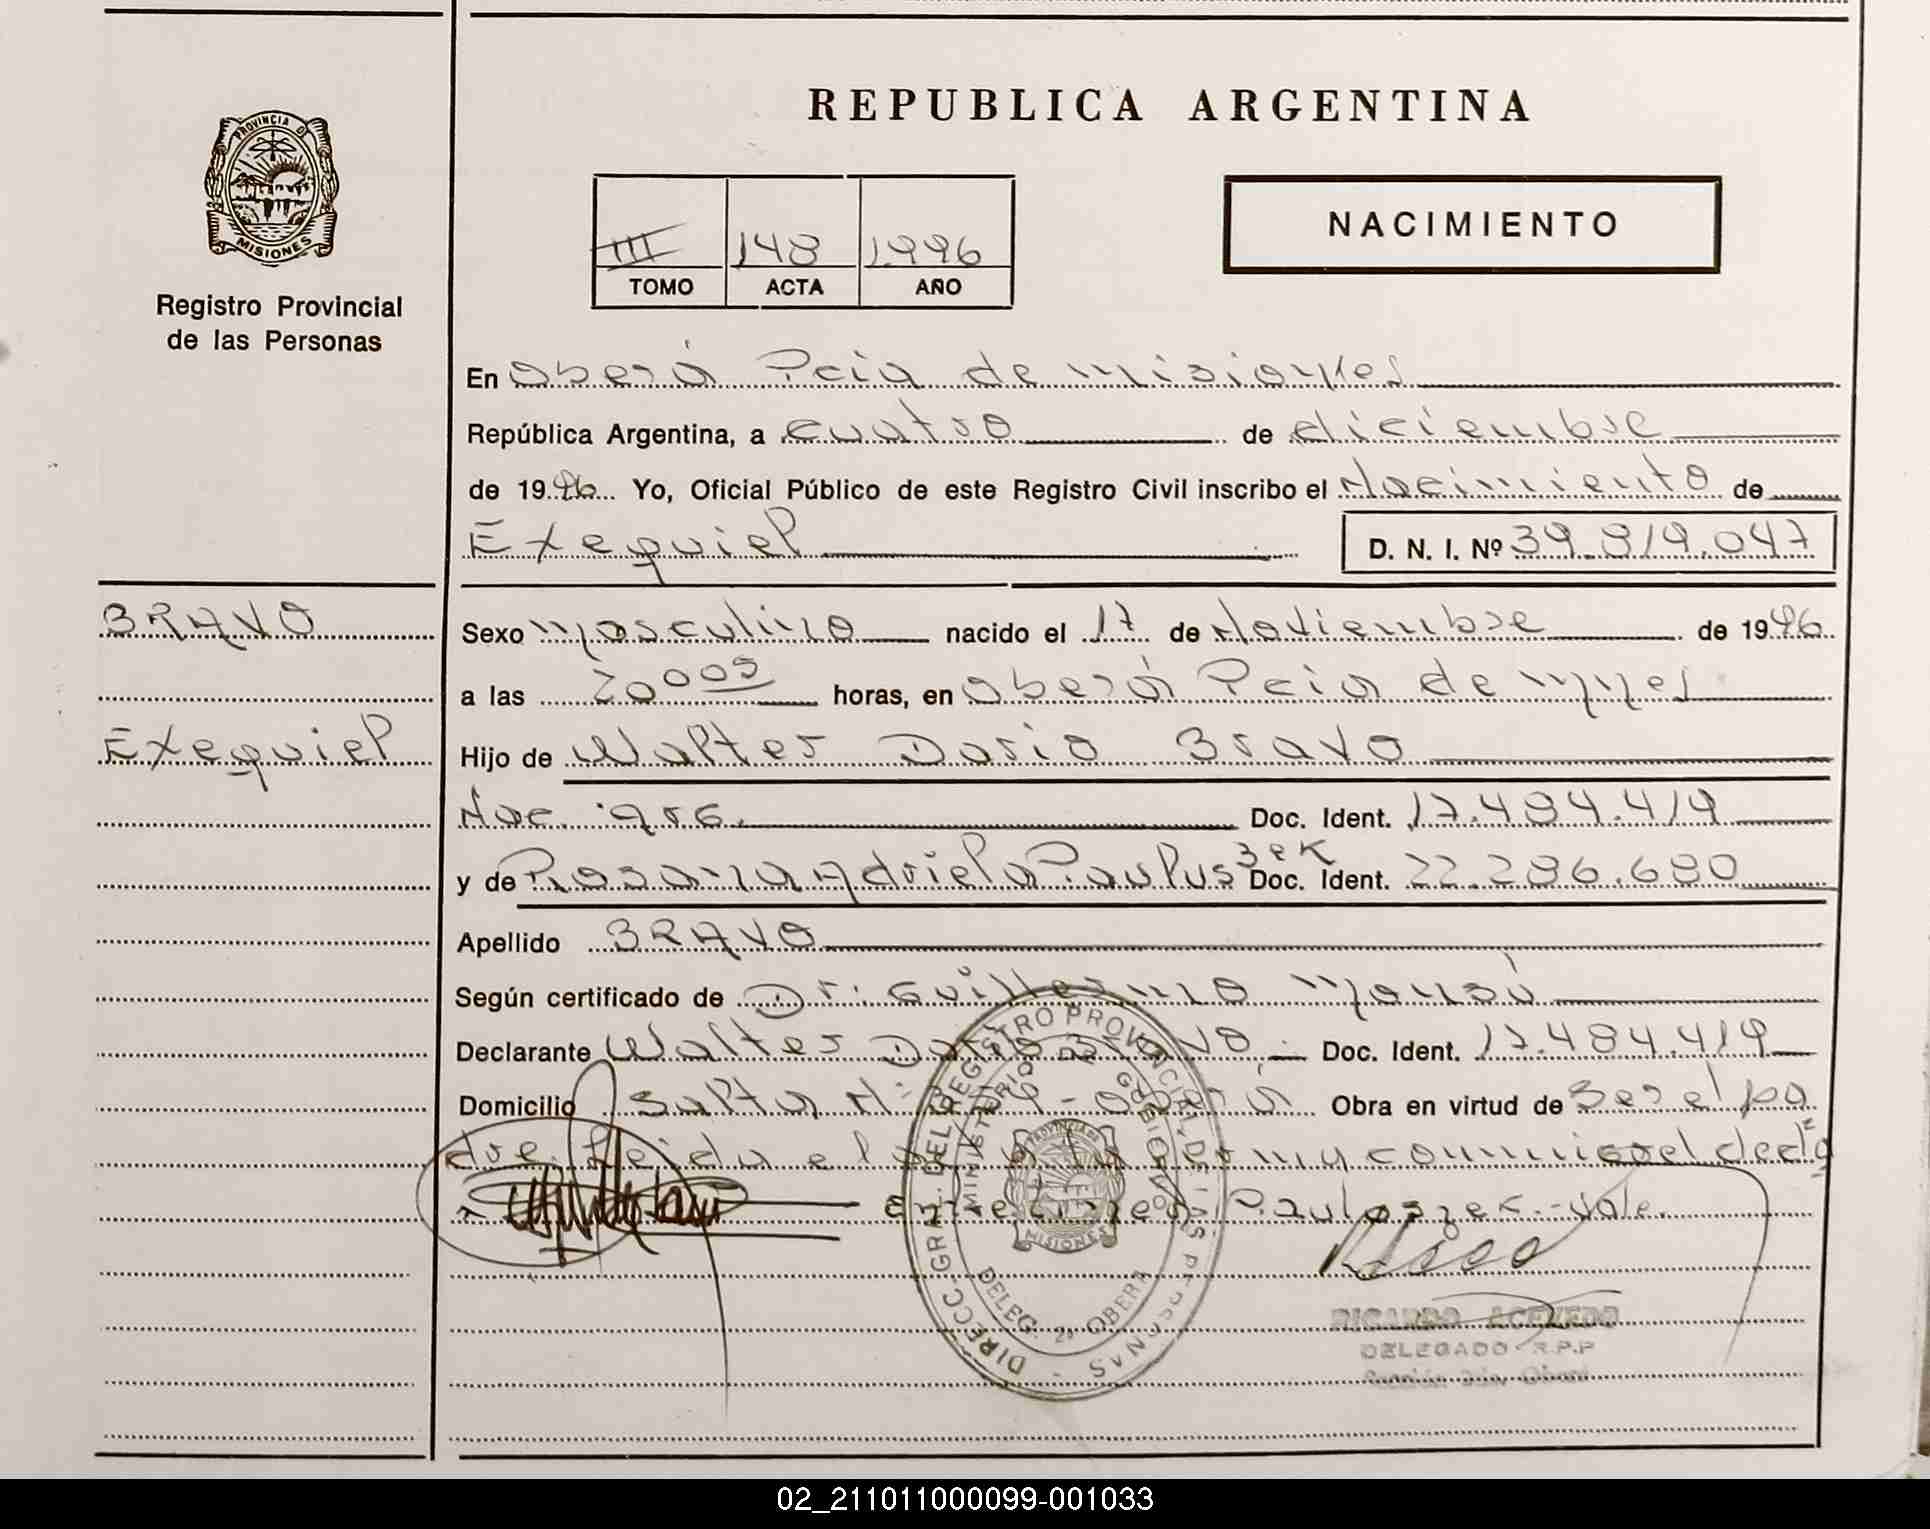 REPUBLICA ARGENTINA
PROVINCIA D
MISIONES
Registro Provincial
de las Personas
III 148 1996
TOMO ACTA AÑO
NACIMIENTO
En Oberá Pcia de Misiones
República Argentina, a cuatro de diciembre
de 1996 Yo, Oficial Público de este Registro Civil inscribo el Nacimiento de
Exequiel D. N. I. Nº 39.819.047
BRAVO
Exequiel
Sexo Masculino nacido el 17 de Noviembre de 1996
a las 20 00 horas, en Oberá Pcia de Mnes
Hijo de Walter Dario Bravo
Nac. arg. Doc. Ident. 17.484.419
y de Rosana Doc. Ident. 22.286.680
Apellido BRAVO
Según certificado de Dr. Guillermo
Declarante Walter Dario Bravo Doc. Ident. 17.484.419
Domicilio Salta N: - Oberá Obra en virtud de Ser el pa
dre. Leida el acta la conmigo el decla
Vale.
DIRECC. GRAL. DEL REGISTRO PROVINCIAL DE LAS PERSONAS
MINISTERIO DE GOBIERNO
PROVINCIA DE
MISIONES
DELEG. 2ª OBERA
RICARDO ACEVEDO
DELEGADO R.P.P
02_211011000099-001033